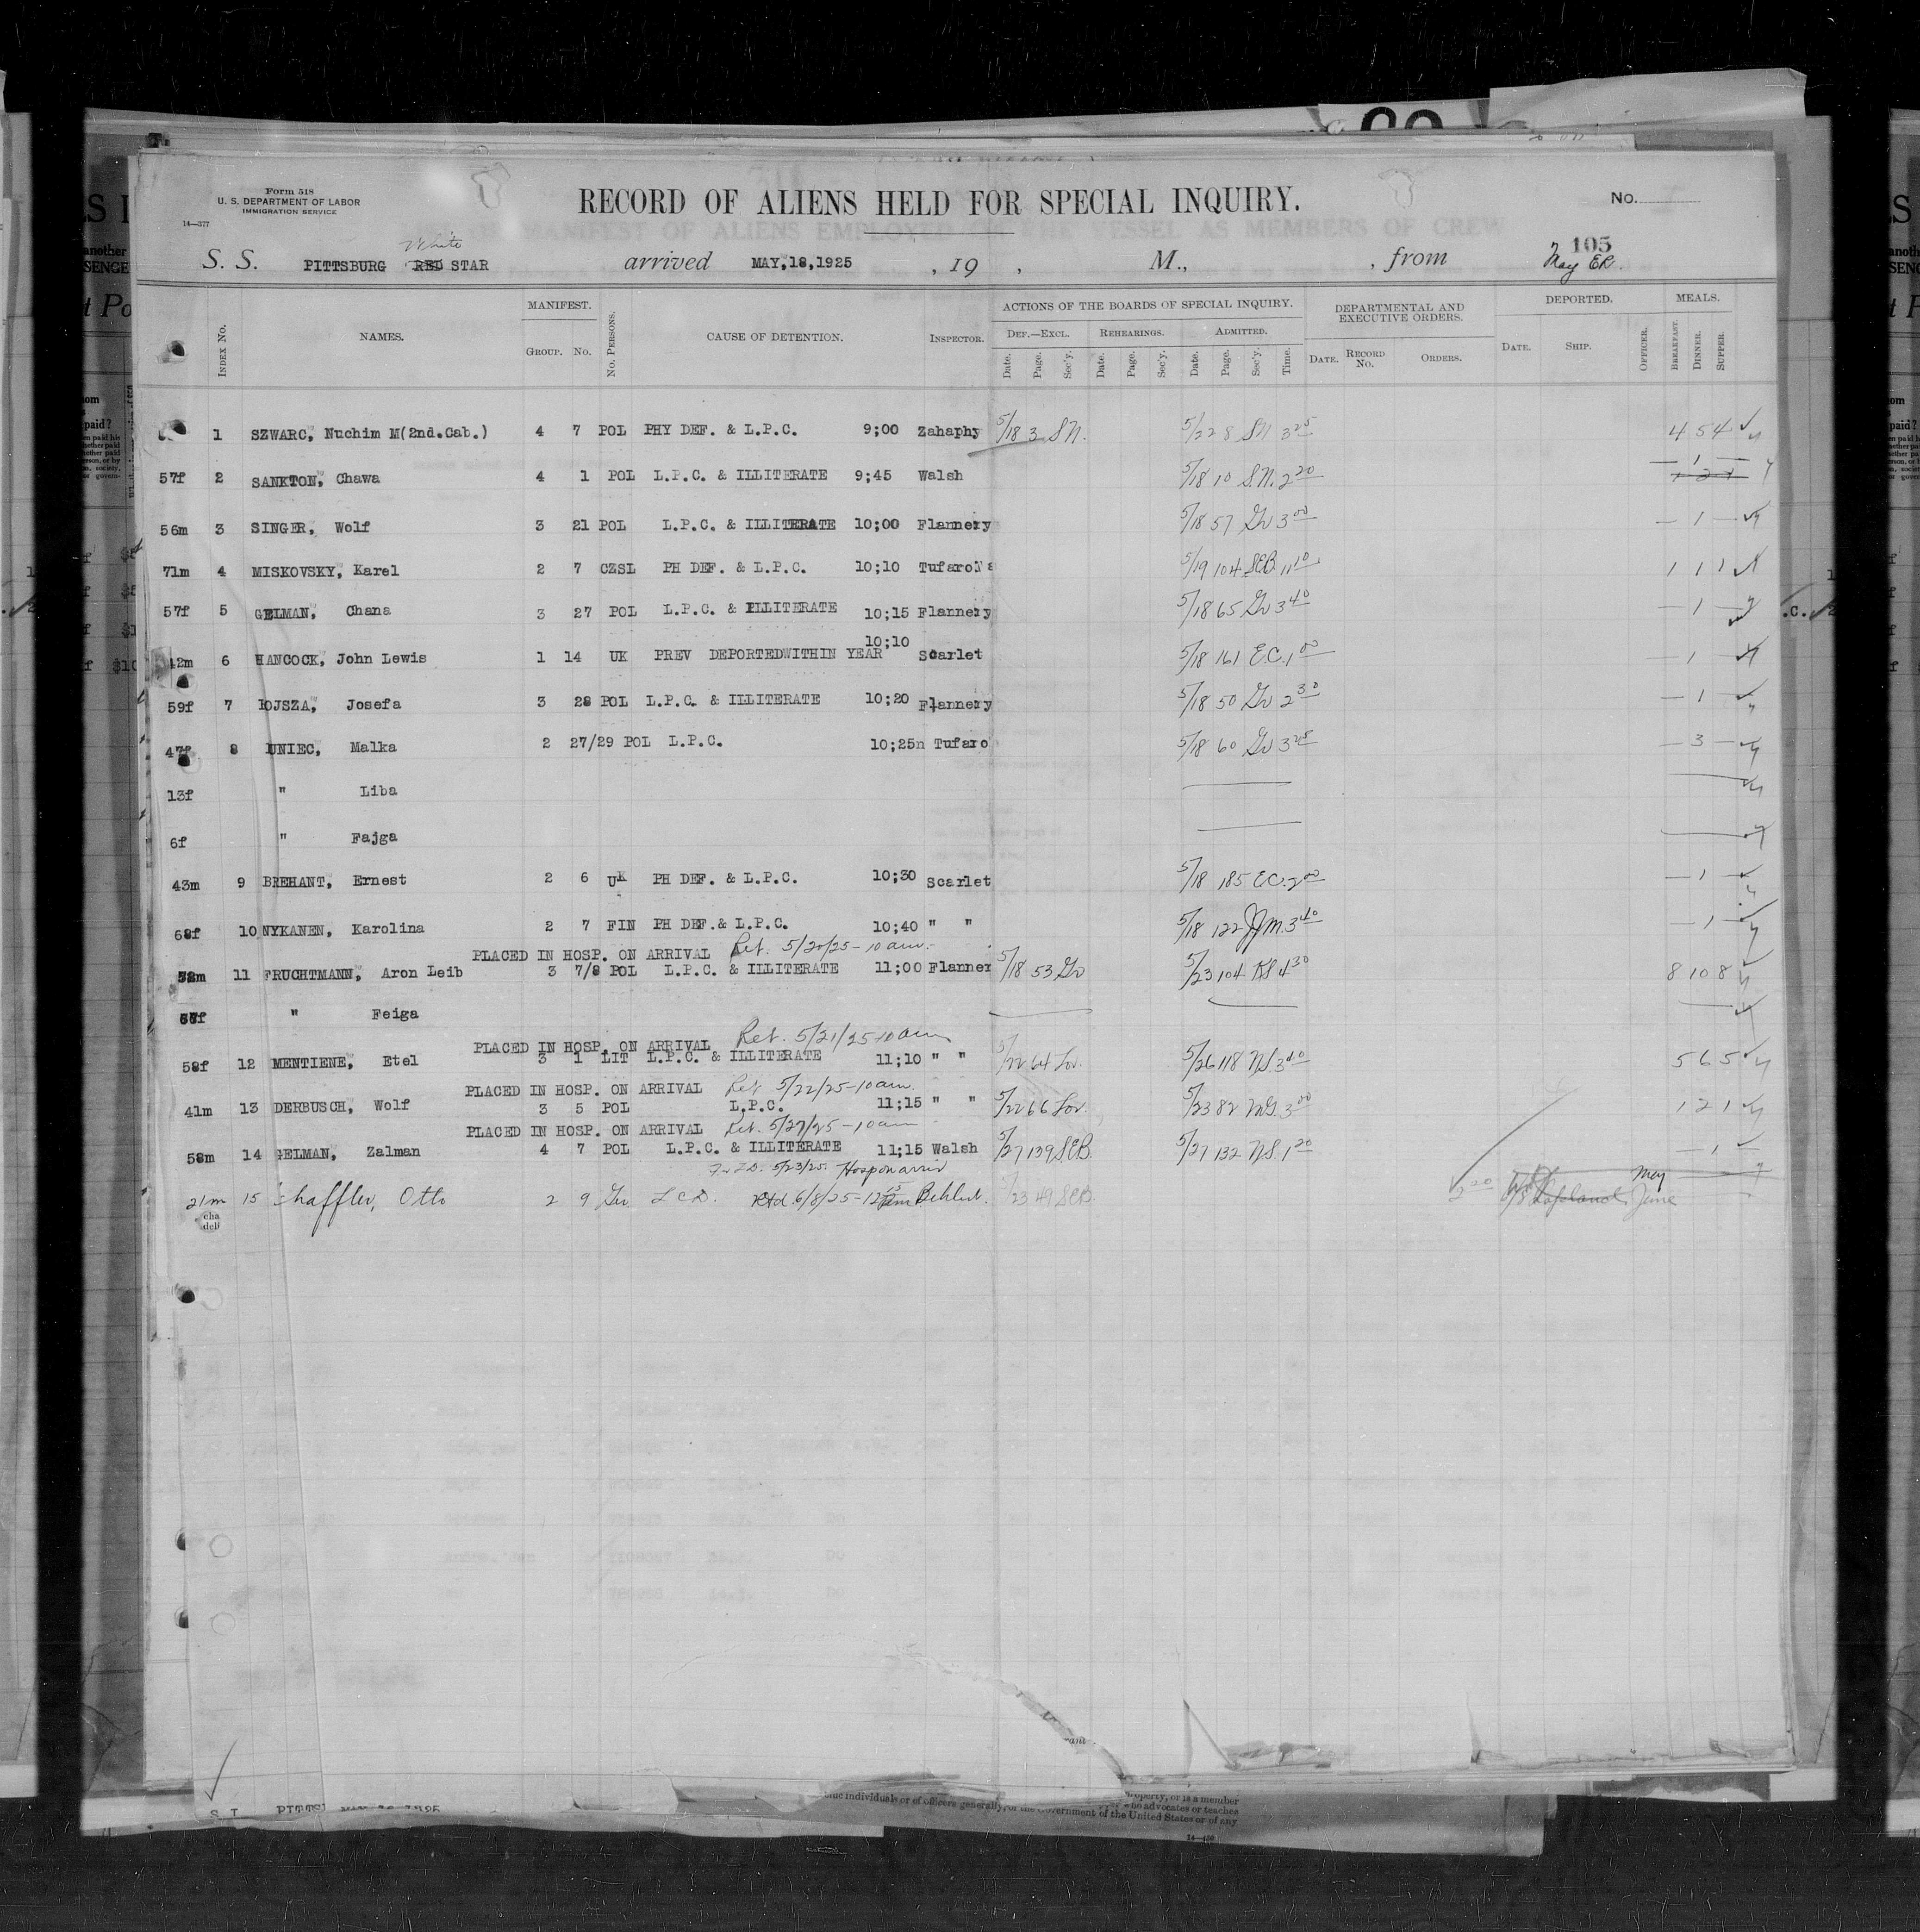 Form 518
U. S. DEPARTMENT OF LABOR
IMMIGRATION SERVICE
14—377
RECORD OF ALIENS HELD FOR SPECIAL INQUIRY.
No.
105
White
S. S. PITTSBURG RED STAR arrived MAY,18,1925 , 19 , M., , from May ER.
INDEX No. NAMES. MANIFEST. GROUP. No. No. PERSONS. CAUSE OF DETENTION. INSPECTOR. ACTIONS OF THE BOARDS OF SPECIAL INQUIRY. DEPARTMENTAL AND EXECUTIVE ORDERS. DEPORTED. MEALS.
DEF.—EXCL. REHEARINGS. ADMITTED.
Date. Page. Sec'y. Date. Page. Sec'y. Date. Page. Sec'y. Time. DATE. RECORD No. ORDERS. DATE. SHIP. OFFICER. BREAKFAST. DINNER. SUPPER.
1 SZWARC, Nuchim M(2nd.Cab.) 4 7 POL PHY DEF. & L.P.C. 9;00 Zahaphy 5/18 3 S.N. 5/22 8 SN 3 25 4 5 4
57f 2 SANKTON, Chawa 4 1 POL L.P.C. & ILLITERATE 9;45 Walsh 5/18 10 S.N. 2 20 — 1 —
56m 3 SINGER, Wolf 3 21 POL L.P.C. & ILLITERATE 10;00 Flannery 5/18 57 Gv 3 00 — 1 —
71m 4 MISKOVSKY, Karel 2 7 CZSL PH DEF. & L.P.C. 10;10 Tufaro 5/19 104 SEB 11 10 1 1 1
57f 5 GELMAN, Chana 3 27 POL L.P.C. & ILLITERATE 10;15 Flannery 5/18 65 Gv 3 40 — 1 —
42m 6 HANCOCK, John Lewis 1 14 UK PREV DEPORTEDWITHIN YEAR 10;10 Scarlet 5/18 161 E.C. 1 00 — 1 —
59f 7 LOJSZA, Josefa 3 28 POL L.P.C. & ILLITERATE 10;20 Flannery 5/18 50 Gv 2 30 — 1 —
47f 8 UNIEC, Malka 2 27/29 POL L.P.C. 10;25n Tufaro 5/18 60 Gv 3 25 — 3 —
13f " Liba
6f " Fajga
43m 9 BREHANT, Ernest 2 6 UK PH DEF. & L.P.C. 10;30 Scarlet 5/18 185 E.C. 2 00 — 1 —
68f 10 NYKANEN, Karolina 2 7 FIN PH DEF.& L.P.C. 10;40 " " 5/18 122 JJM. 3 40 — 1 —
PLACED IN HOSP. ON ARRIVAL Ret. 5/20/25 - 10 am.
11 FRUCHTMANN, Aron Leib 3 7/8 POL L.P.C. & ILLITERATE 11;00 Flanner 5/18 53 Gv 5/23 104 4 30 8 10 8
" Feiga
PLACED IN HOSP. ON ARRIVAL Ret. 5/21/25 10 am
58f 12 MENTIENE, Etel 3 1 LIT L.P.C. & ILLITERATE 11;10 " " 5/22 64 Lov. 5/26 118 N.S. 3 40 5 6 5
PLACED IN HOSP. ON ARRIVAL Ret 5/22/25 - 10 am.
41m 13 DERBUSCH, Wolf 3 5 POL L.P.C. 11;15 " " 5/22 66 Lov. 5/23 82 3 00 1 2 1
PLACED IN HOSP. ON ARRIVAL Ret. 5/27/25 - 10 am
58m 14 GELMAN, Zalman 4 7 POL L.P.C. & ILLITERATE 11;15 Walsh 5/27 139 SEB. 5/27 132 N.S. 1 20 — 1 —
5/23/25 Hosp on arriv
21m 15 Schaffler, Otto 2 9 Ger L C D. Retd 6/8/25 - 12 5/23 49 SEB 2 20 May
June
cha
deli
S I PITTS MAY 18 1925